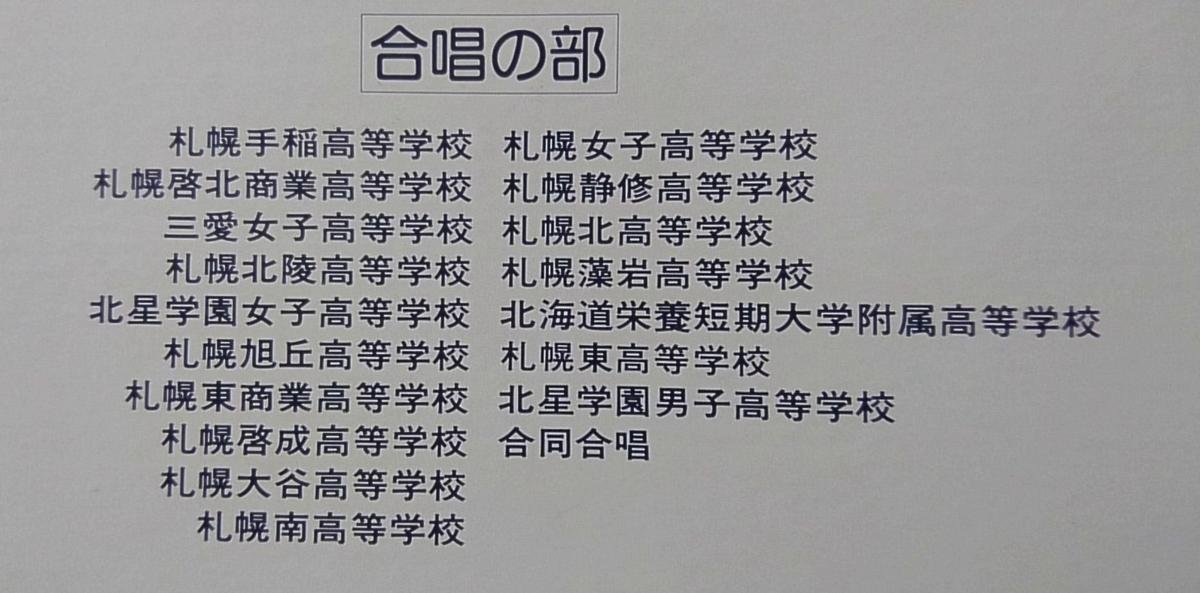 合唱の部
札幌手稲高等学校
札幌啓北商業高等学校
三愛女子高等学校
札幌北陵高等学校
北星学園女子高等学校
札幌旭丘高等学校
札幌東商業高等学校
札幌啓成高等学校
札幌大谷高等学校
札幌南高等学校
札幌女子高等学校
札幌静修高等学校
札幌北高等学校
札幌藻岩高等学校
北海道栄養短期大学附属高等学校
札幌東高等学校
北星学園男子高等学校
合同合唱